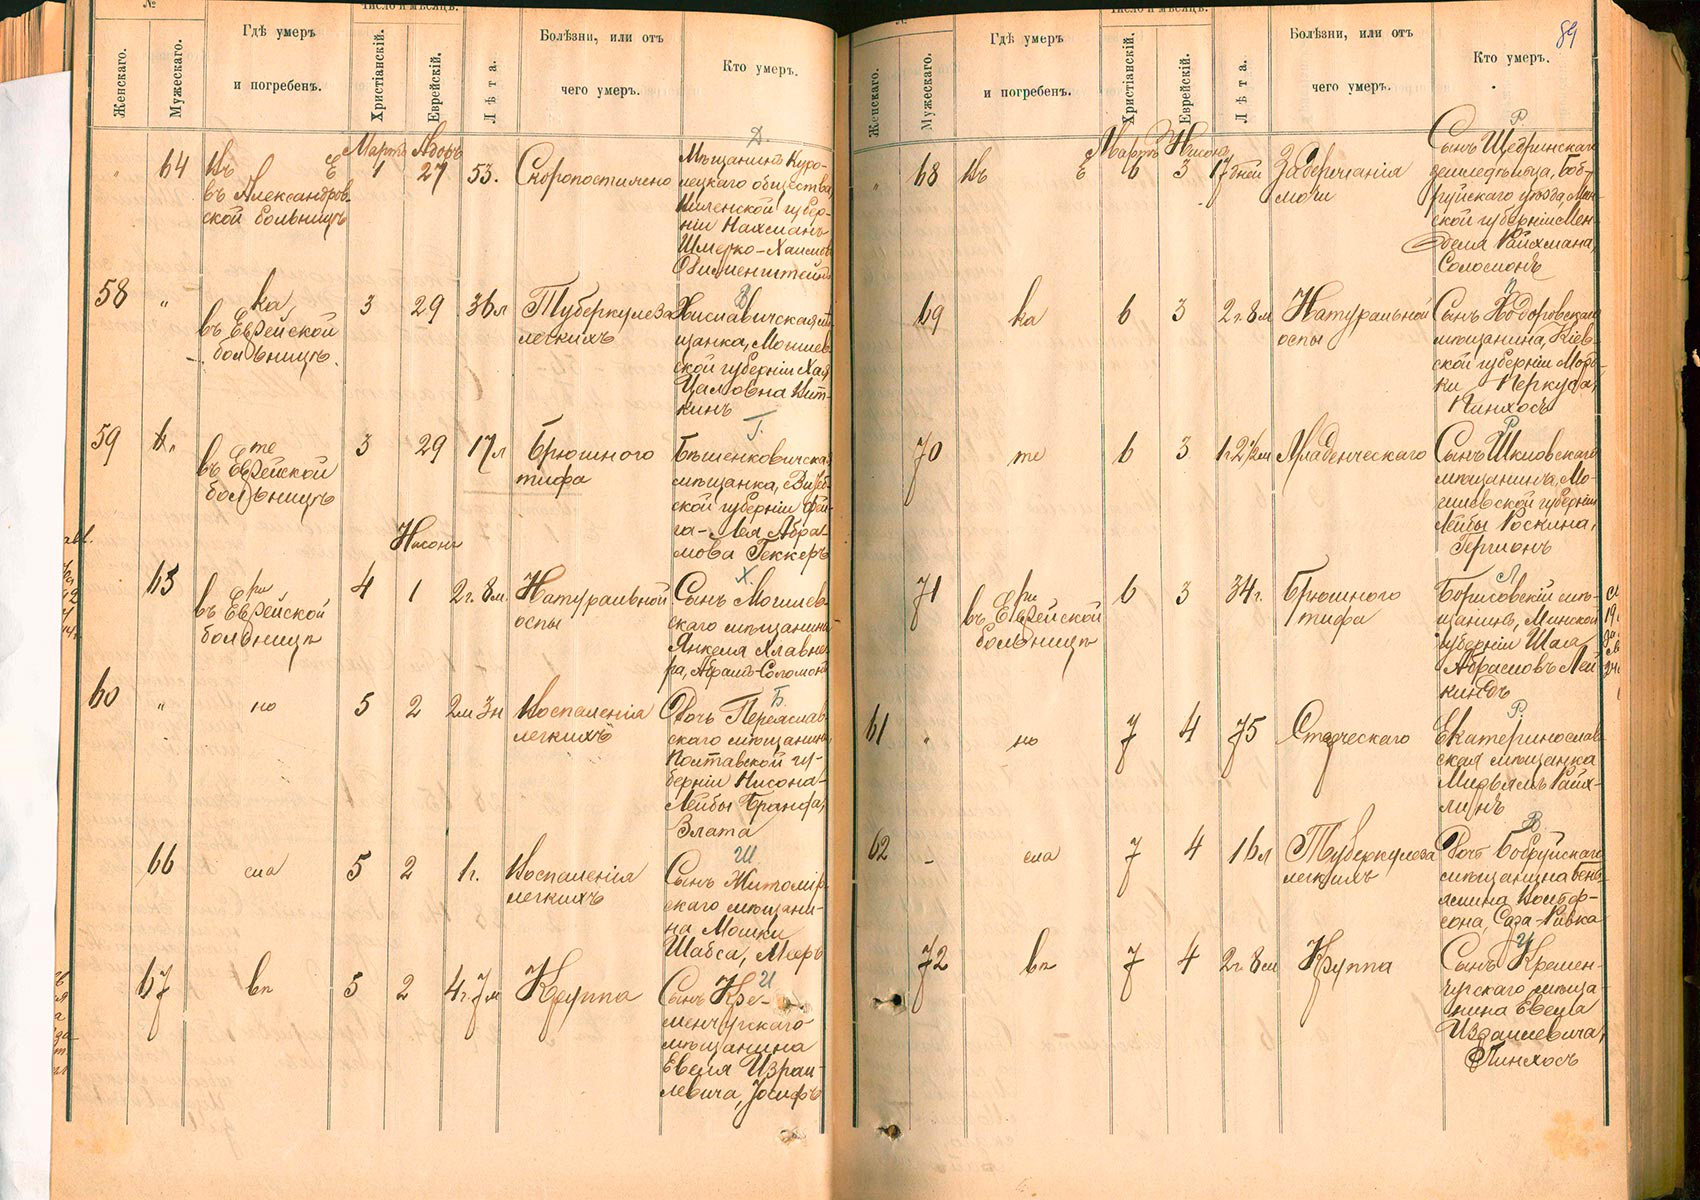 №
Женскаго.
Мужескаго.
Гдѣ умеръ
и погребенъ.
Число и мѣсяцъ.
Христіанскій.
Еврейскій.
Лѣта.
Болѣзни, или отъ
чего умеръ.
Кто умеръ.
Д
Мартъ Адоръ
64
Въ Е
въ Александров-
ской больницѣ
1
27
53.
Скоропостижно
Мѣщанинъ Куро-
нецкаго общества
Виленской губер-
ніи Нахманъ
Шмерко-Хаимовъ
58
"
ка
въ Еврейской
больницѣ.
3
29
36 л
Туберкулеза
легкихъ
Хиславичская мѣ-
щанка, Могилев-
ской губерніи Хая
Вит-
кинъ
59
те
въ Еврейской
больницѣ
3
29
17 л
Брюшного
тифа
Г.
Бѣшенковичская
мѣщанка, Витеб-
ской губерніи Фей-
га-Лея Абра-
мова Геккеръ
Нисонъ
65
ри
въ Еврейской
больницѣ
4
1
2 г. 8 м.
Натуральной
оспы
Х.
Сынъ Могилев-
скаго мѣщанина
Янкеля Хлавне-
ра, Абрамъ-Соломонъ
60
"
но
5
2
2 м 3 н
Воспаленія
легкихъ
Б.
Дочь Переяслав-
скаго мѣщанина,
Полтавской гу-
берніи Нисона-
Лейбы Бранфа,
Злата
66
сла
5
2
1 г.
Воспаленія
легкихъ
Ш.
Сынъ Житомір-
скаго мѣщани-
на Мошки
Шабса, Мееръ
67
вп
5
2
4 г. 7 м
Круппа
И
Сынъ Кре-
менчугскаго
мѣщанина
Евеля Израи-
левича, Іосифъ
89
№
Женскаго.
Мужескаго.
Гдѣ умеръ
и погребенъ.
Число и мѣсяцъ.
Христіанскій.
Еврейскій.
Лѣта.
Болѣзни, или отъ
чего умеръ.
Кто умеръ.
Р.
Мартъ Нисонъ
68
Въ Е
6
3
17 дней
Задержанія
мочи
Сынъ Щедринскаго
земледѣльца, Боб-
руйскаго уѣзда, Мин-
ской губерніи Мен-
деля Райхмана,
Соломонъ
69
ка
6
3
2 г. 8 м
Натуральной
оспы
Сынъ Ходоровскаго
мѣщанина, Кіев-
ской губерніиМорд-
ки Перкуфа,
Пинхосъ
70
те
6
3
1 г 2 ½ м
Младенческаго
Р
Сынъ Шкловскаго
мѣщанина, Мо-
гилевской губерніи
Лейбы Роскина,
Гершонъ
71
ри
въ Еврейской
больницѣ
6
3
34 г.
Брюшного
тифа
Л
Борисовскій мѣ-
щанинъ, Минской
губерніи Шая
Абрамовъ Лей-
киндъ
61
но
7
4
75
Старческаго
Р.
Екатеринослав-
ская мѣщанка
Мирьямъ Райх-
линъ
62
сла
7
4
16 л
Туберкулеза
легкихъ
В.
Дочь Бобруйскаго
мѣщанина Бень-
ямина Вольф-
сона, Сора-Ривка
72
вп
7
4
2 г 8 м
Круппа
И
Сынъ Кремен-
чугскаго мѣща-
нина Евеля
Израилевича,
Пинхосъ